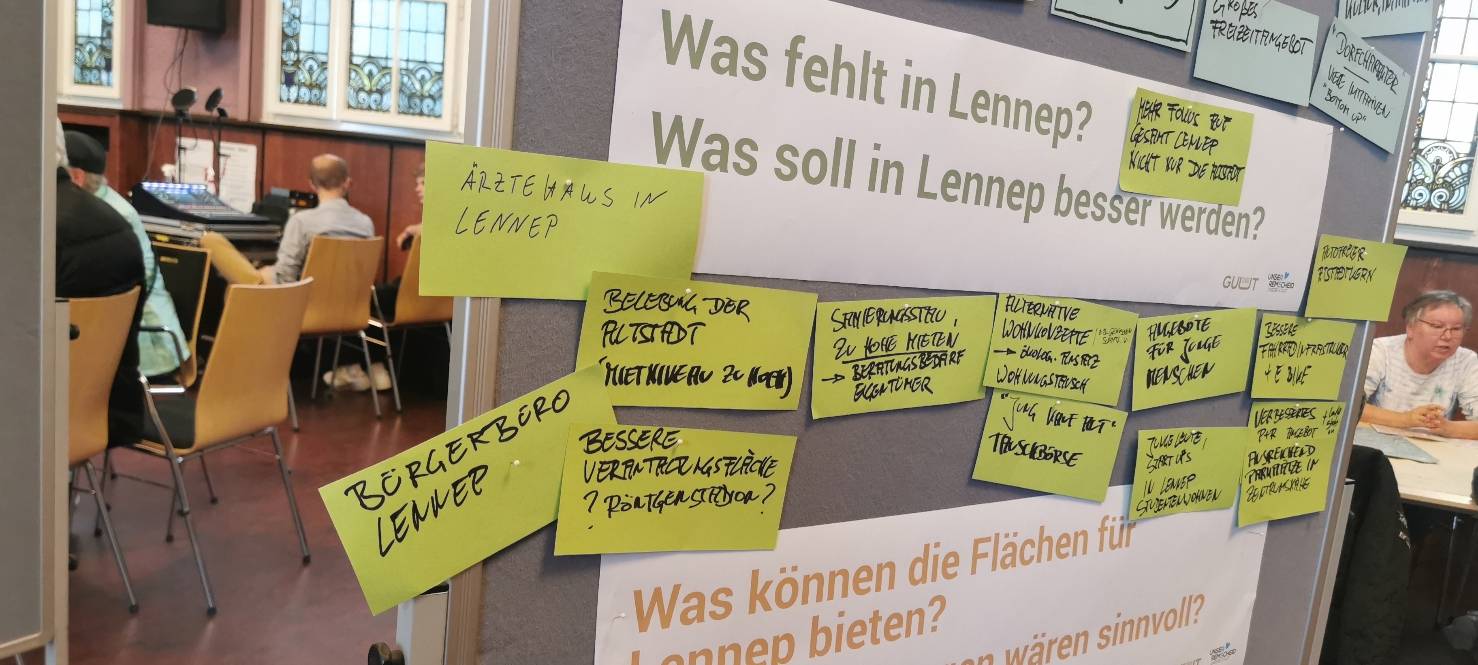 GROßES
FREIZEITANGEBOT
VIELE INITIATIVEN
"BOTTOM UP"
Was fehlt in Lennep?
Was soll in Lennep besser werden?
MEHR FOKUS AUF
GESAMT LENNEP
NICHT NUR DIE ALTSTADT
ÄRZTEHAUS IN
LENNEP
BELEBUNG DER
ALTSTADT
(MIETNIVEAU ZU HOCH)
SANIERUNGSSTAU,
ZU HOHE MIETEN
→ BERATUNGSBEDARF
EIGENTÜMER
ALTERNATIVE
WOHNKONZEPTE
→ ÖKOLOG. ANSATZ
WOHNUNGSTAUSCH
ANGEBOTE
FÜR JUNGE
MENSCHEN
BESSERE
FAHRRADINFRASTRUKTUR
+ E BIKE
AUTOFREIER
BÜRGERBÜRO
LENNEP
BESSERE
VERANSTALTUNGSFLÄCHE
? RÖNTGENSTADION?
"JUNG KAUFT ALT"
TAUSCHBÖRSE
JUNGE LEUTE,
START UPS
IN LENNEP
STUDENTENWOHNEN
VERBESSERTES
P+R ANGEBOT
AUSREICHEND
PARKPLÄTZE IN
ZENTRUMSNÄHE
GUUT
UNSER
REMSCHEID
Was können die Flächen für
Lennep bieten?
wären sinnvoll?
UNSER
REMSCHEID